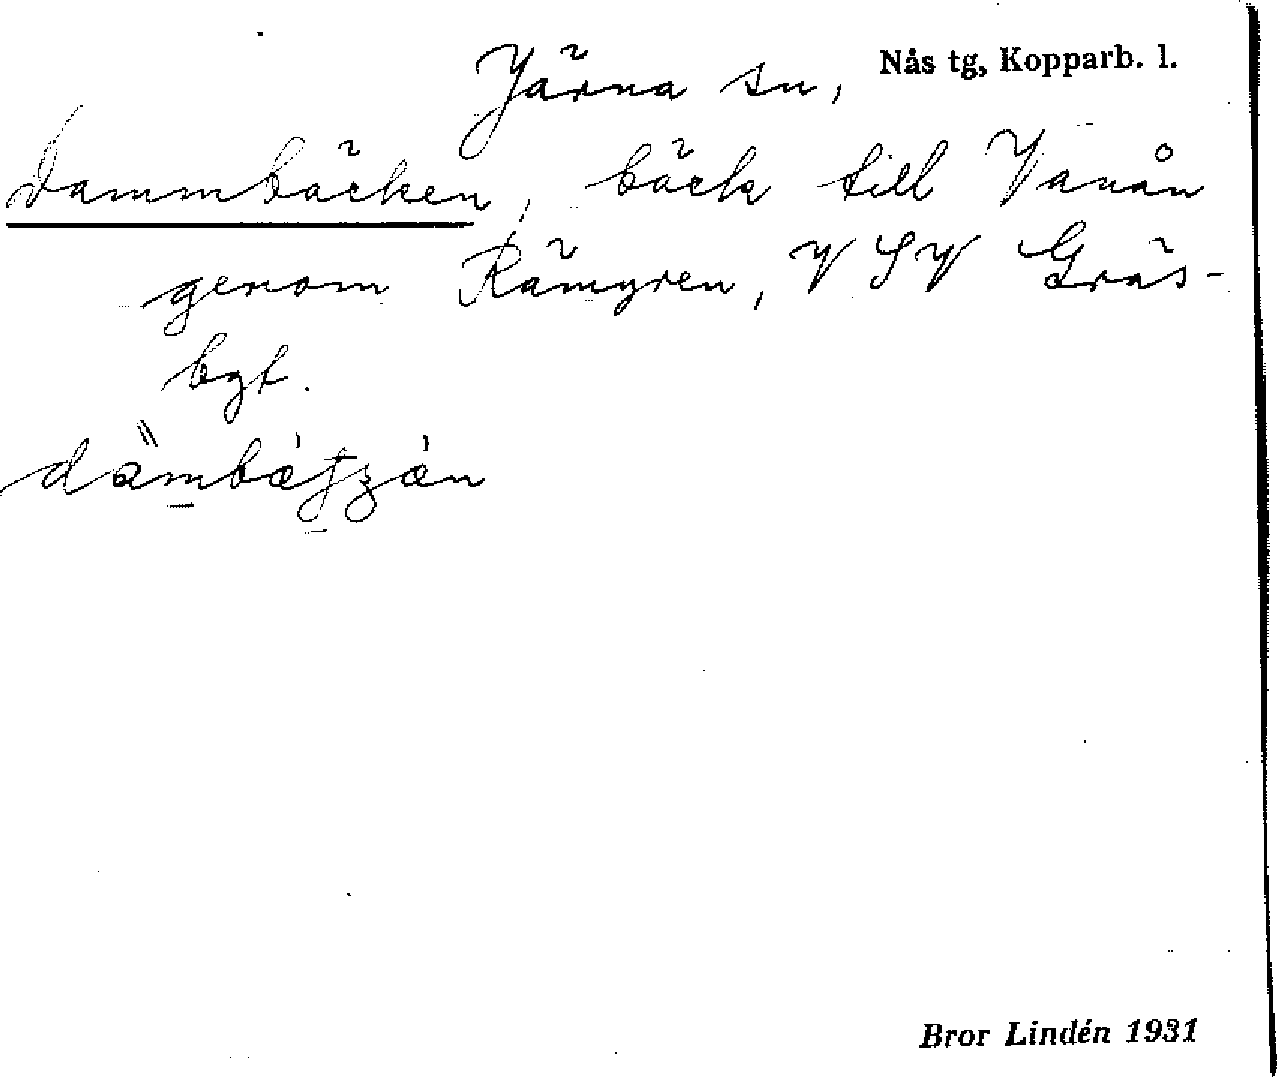 Järna sn, Nås tg, Kopparb. l.
Dammbäcken, bäck till Vanån
genom Rämyren, V SV Gräs-
bgt.
Bror Lindén 1931